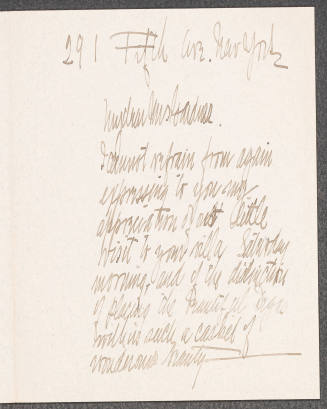 291 Fifth Ave. New York
My dear Mrs Gardner.
I cannot refrain from again
expressing to you my
appreciation of our little
visit to your villa Saturday
morning, and of the distinction
of placing the
within such a casket of
wondrous beauty